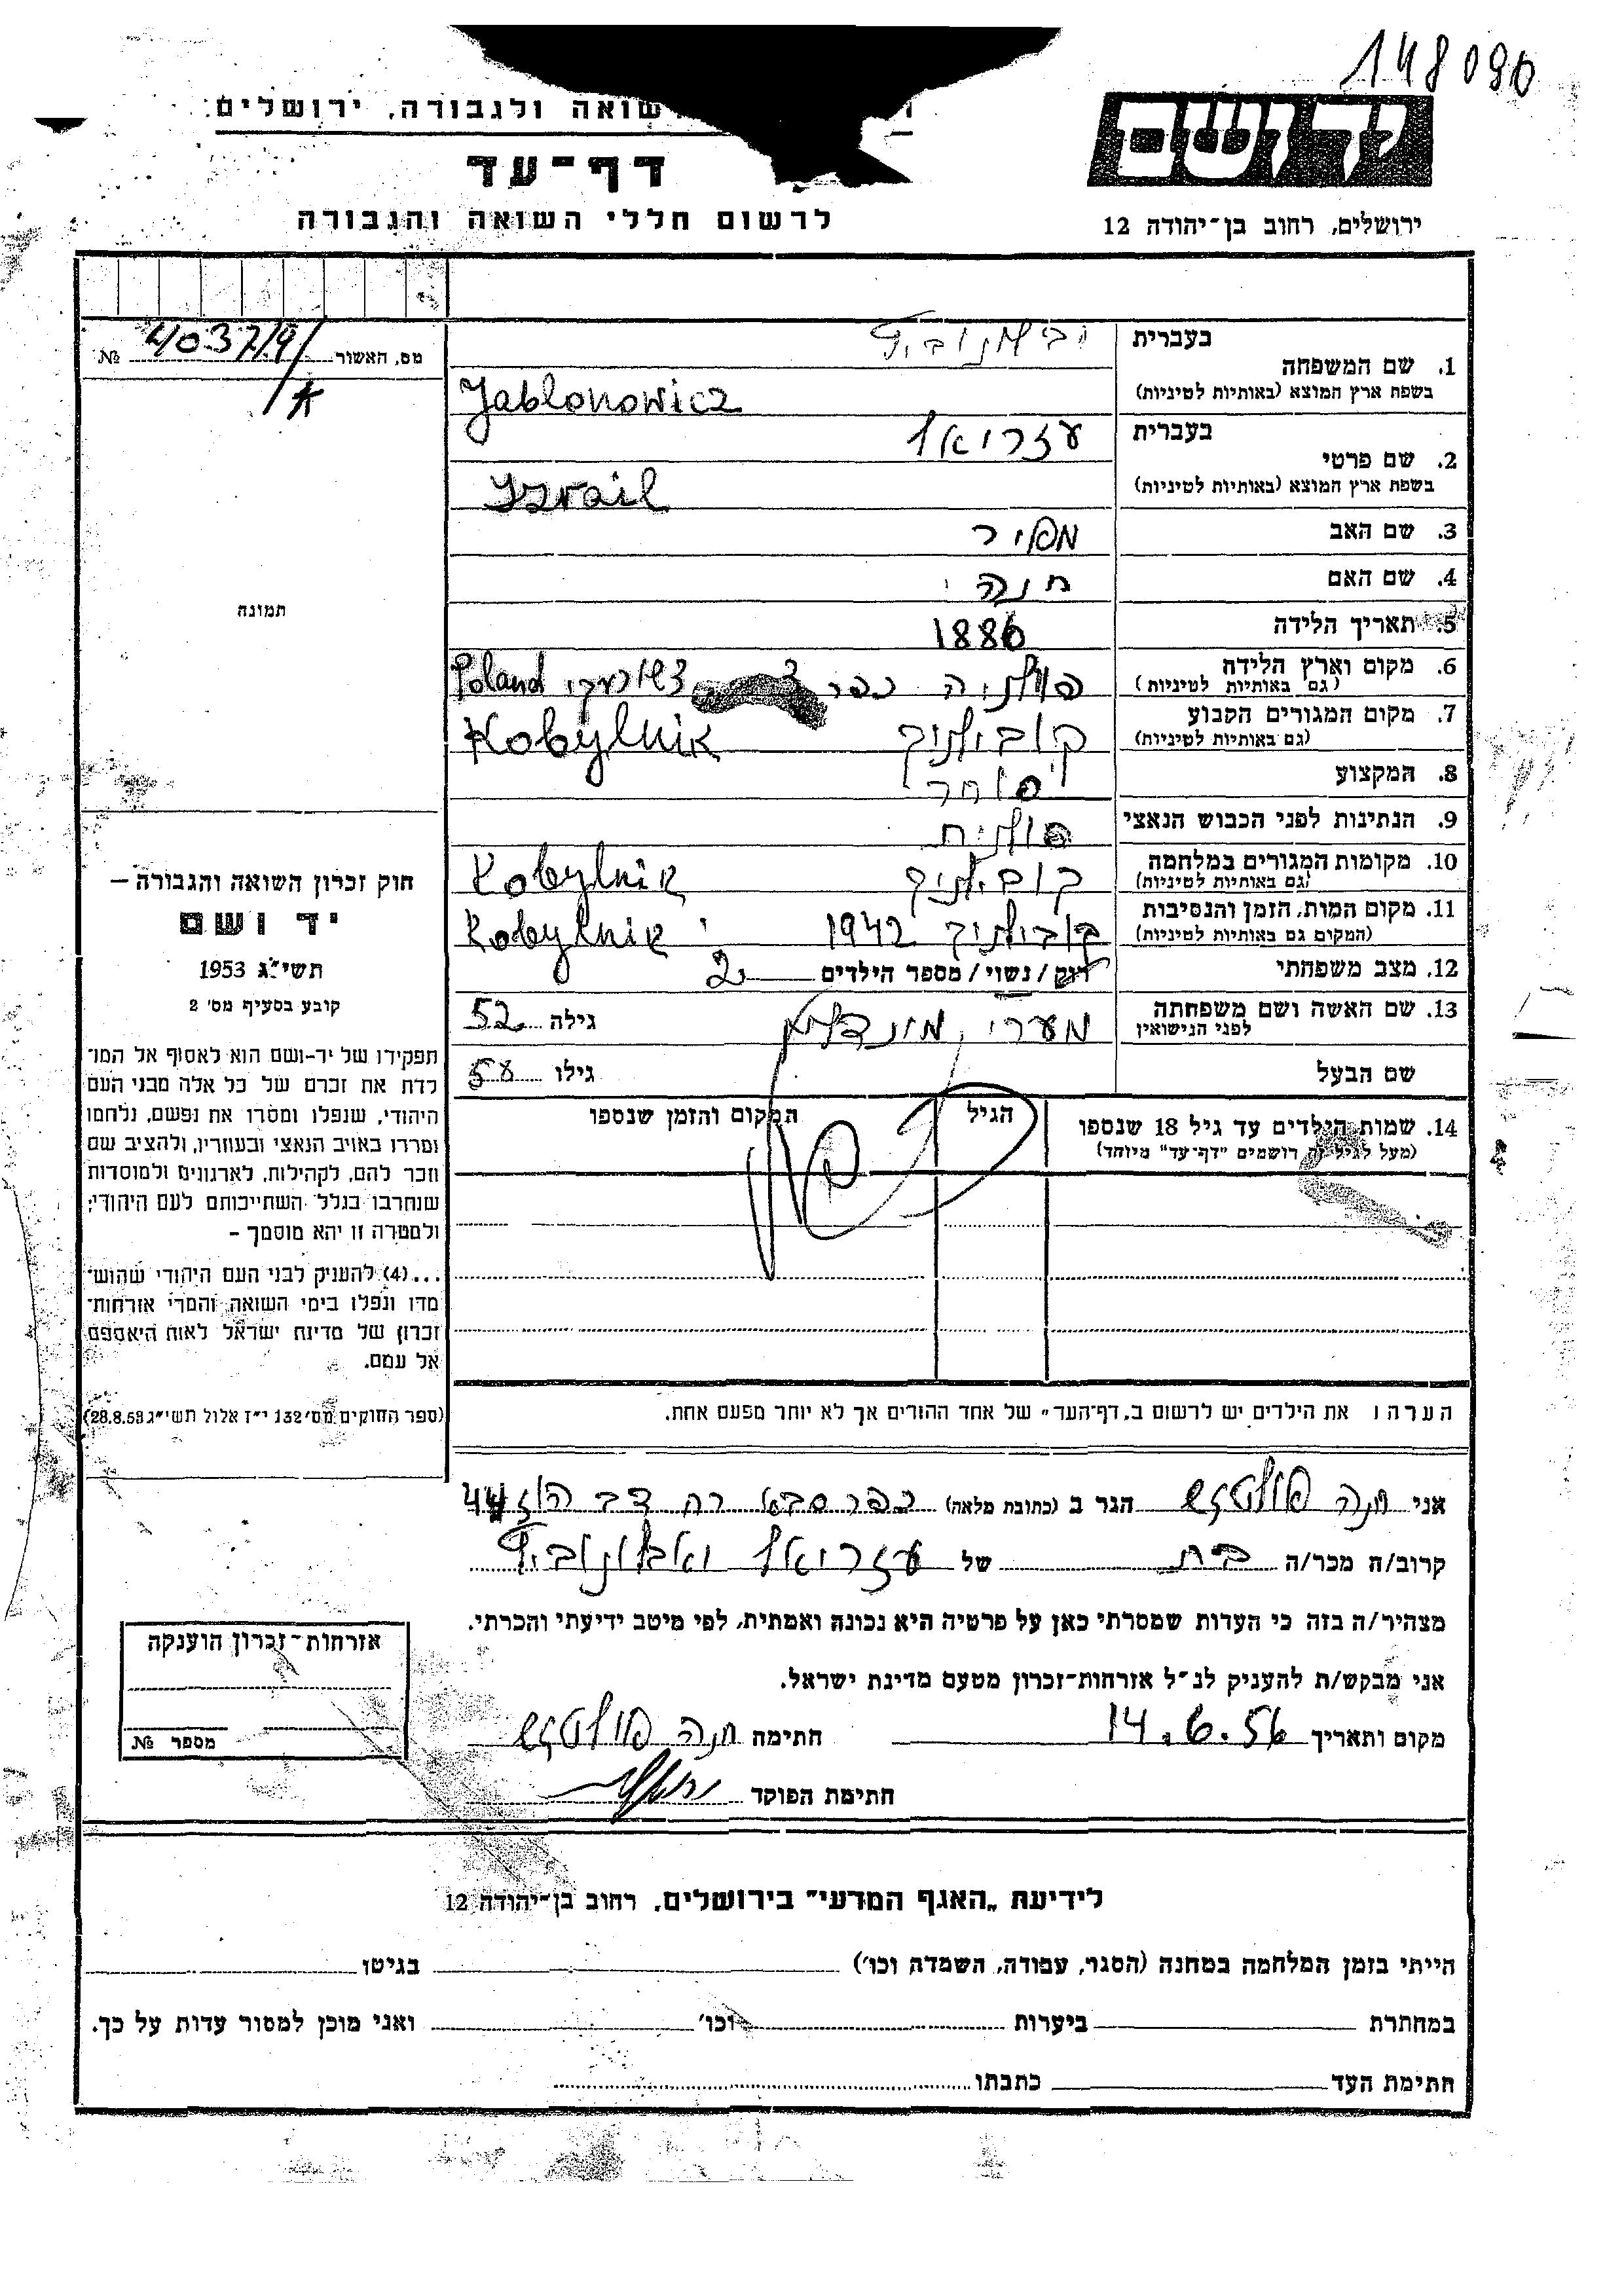 148090
שואה ולגבורה, ירושלים
דף-עד
לרשום חללי השואה והגבורה
ידושם
ירושלים, רחוב בן-יהודה 12
מס. האשור 4037/9 №
1. שם המשפחה
בעברית
בשפת ארץ המוצא (באותיות לטיניות) Jablonowicz
2. שם פרטי
בעברית עזריאל
בשפת ארץ המוצא (באותיות לטיניות) Izrail
3. שם האב מאיר
4. שם האם חנה
5. תאריך הלידה 1886
6. מקום וארץ הלידה פולניה כפר Poland
(גם באותיות לטיניות)
7. מקום המגורים הקבוע קובילניק Kobylnik
(גם באותיות לטיניות)
8. המקצוע סוחר
9. הנתינות לפני הכבוש הנאצי פולנית
10. מקומות המגורים במלחמה קובילניק Kobylnik
(גם באותיות לטיניות)
11. מקום המות, הזמן והנסיבות קובילניק 1942 Kobylnik
(המקום גם באותיות לטיניות)
12. מצב משפחתי רווק/נשוי/מספר הילדים 2
13. שם האשה ושם משפחתה גילה 52
לפני הנישואין
שם הבעל גילו 58
14. שמות הילדים עד גיל 18 שנספו הגיל המקום והזמן שנספו
(מעל לגיל זה רושמים "דף-עד" מיוחד)
תמונה
חוק זכרון השואה והגבורה –
יד ושם
תשי"ג 1953
קובע בסעיף מס' 2
תפקידו של יד-ושם הוא לאסוף אל המו־
לדת את זכרם של כל אלה מבני העם
היהודי, שנפלו ומסרו את נפשם, נלחמו
ומרדו באויב הנאצי ובעוזריו, ולהציב שם
וזכר להם, לקהילות, לארגונים ולמוסדות
שנחרבו בגלל השתייכותם לעם היהודי;
ולמטרה זו יהא מוסמך –
...(4) להעניק לבני העם היהודי שהוש־
מדו ונפלו בימי השואה והמרי אזרחות־
זכרון של מדינת ישראל לאות היאספם
אל עמם.
(ספר החוקים מס' 132 י"ז אלול תשי"ג 28.8.53)
הערה: את הילדים יש לרשום ב„דף-העד" של אחד ההורים אך לא יותר מפעם אחת.
אני חנה הגר ב (כתובת מלאה) כפר סבא רח דב הוז 44
קרוב/ה מכר/ה בת של עזריאל יאבלונוביץ
מצהיר/ה בזה כי העדות שמסרתי כאן על פרטיה היא נכונה ואמתית, לפי מיטב ידיעתי והכרתי.
אני מבקש/ת להעניק לנ"ל אזרחות-זכרון מטעם מדינת ישראל.
מקום ותאריך 14.6.56 חתימה חנה
חתימת הפוקד
אזרחות-זכרון הוענקה
מספר №
לידיעת „האגף המדעי" בירושלים, רחוב בן-יהודה 12
הייתי בזמן המלחמה במחנה (הסגר, עבודה, השמדה וכו') בגיטו
במחתרת ביערות וכו' ואני מוכן למסור עדות על כך.
חתימת העד כתבתו